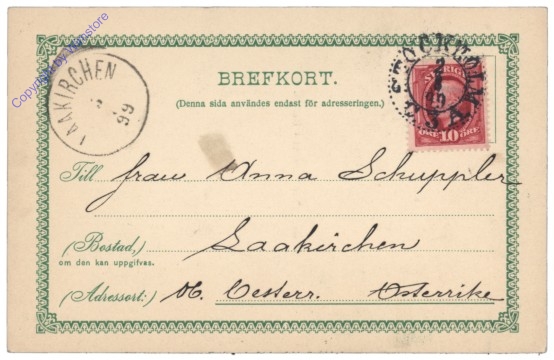 Copyright by venstore
LAAKIRCHEN
99
STOCKHOLM
SVERIGE
ÖRE 10 ÖRE
BREFKORT.
(Denna sida användes endast för adresseringen.)
Till Frau Anna Schuppler
(Bostad,) Laakirchen
om den kan uppgifvas.
(Adressort:) Ob. Oesterr. Österrike